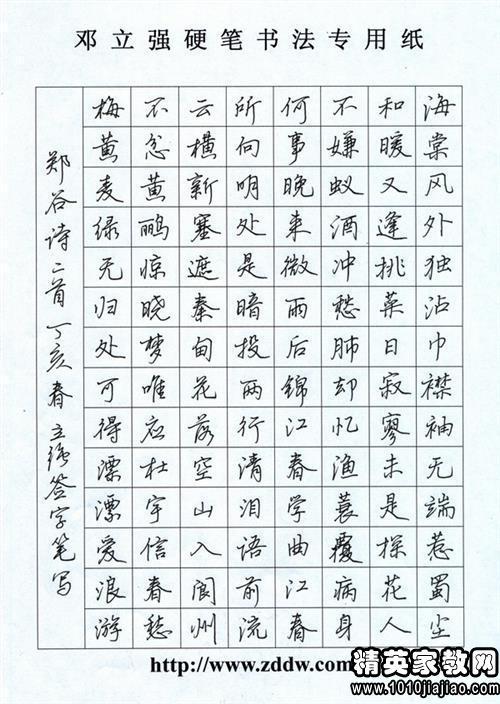 邓立强硬笔书法专用纸
海棠风外独沾巾襟袖无端惹蜀尘
和暖又逢挑菜日寂寥未是探花人
不嫌蚁酒冲愁肺却忆渔蓑覆病身
何事晚来微雨后锦江春学曲江春
所向明处是暗投两行清泪语前流
云横新塞遮秦甸花落空山入阆州
不忿黄鹂惊晓梦唯应杜宇信春愁
梅黄麦绿无归处可得漂漂爱浪游
郑谷诗二首丁亥春立强签字笔写
http://www.zddw.com
精英家教网
www.1010jiajiao.com